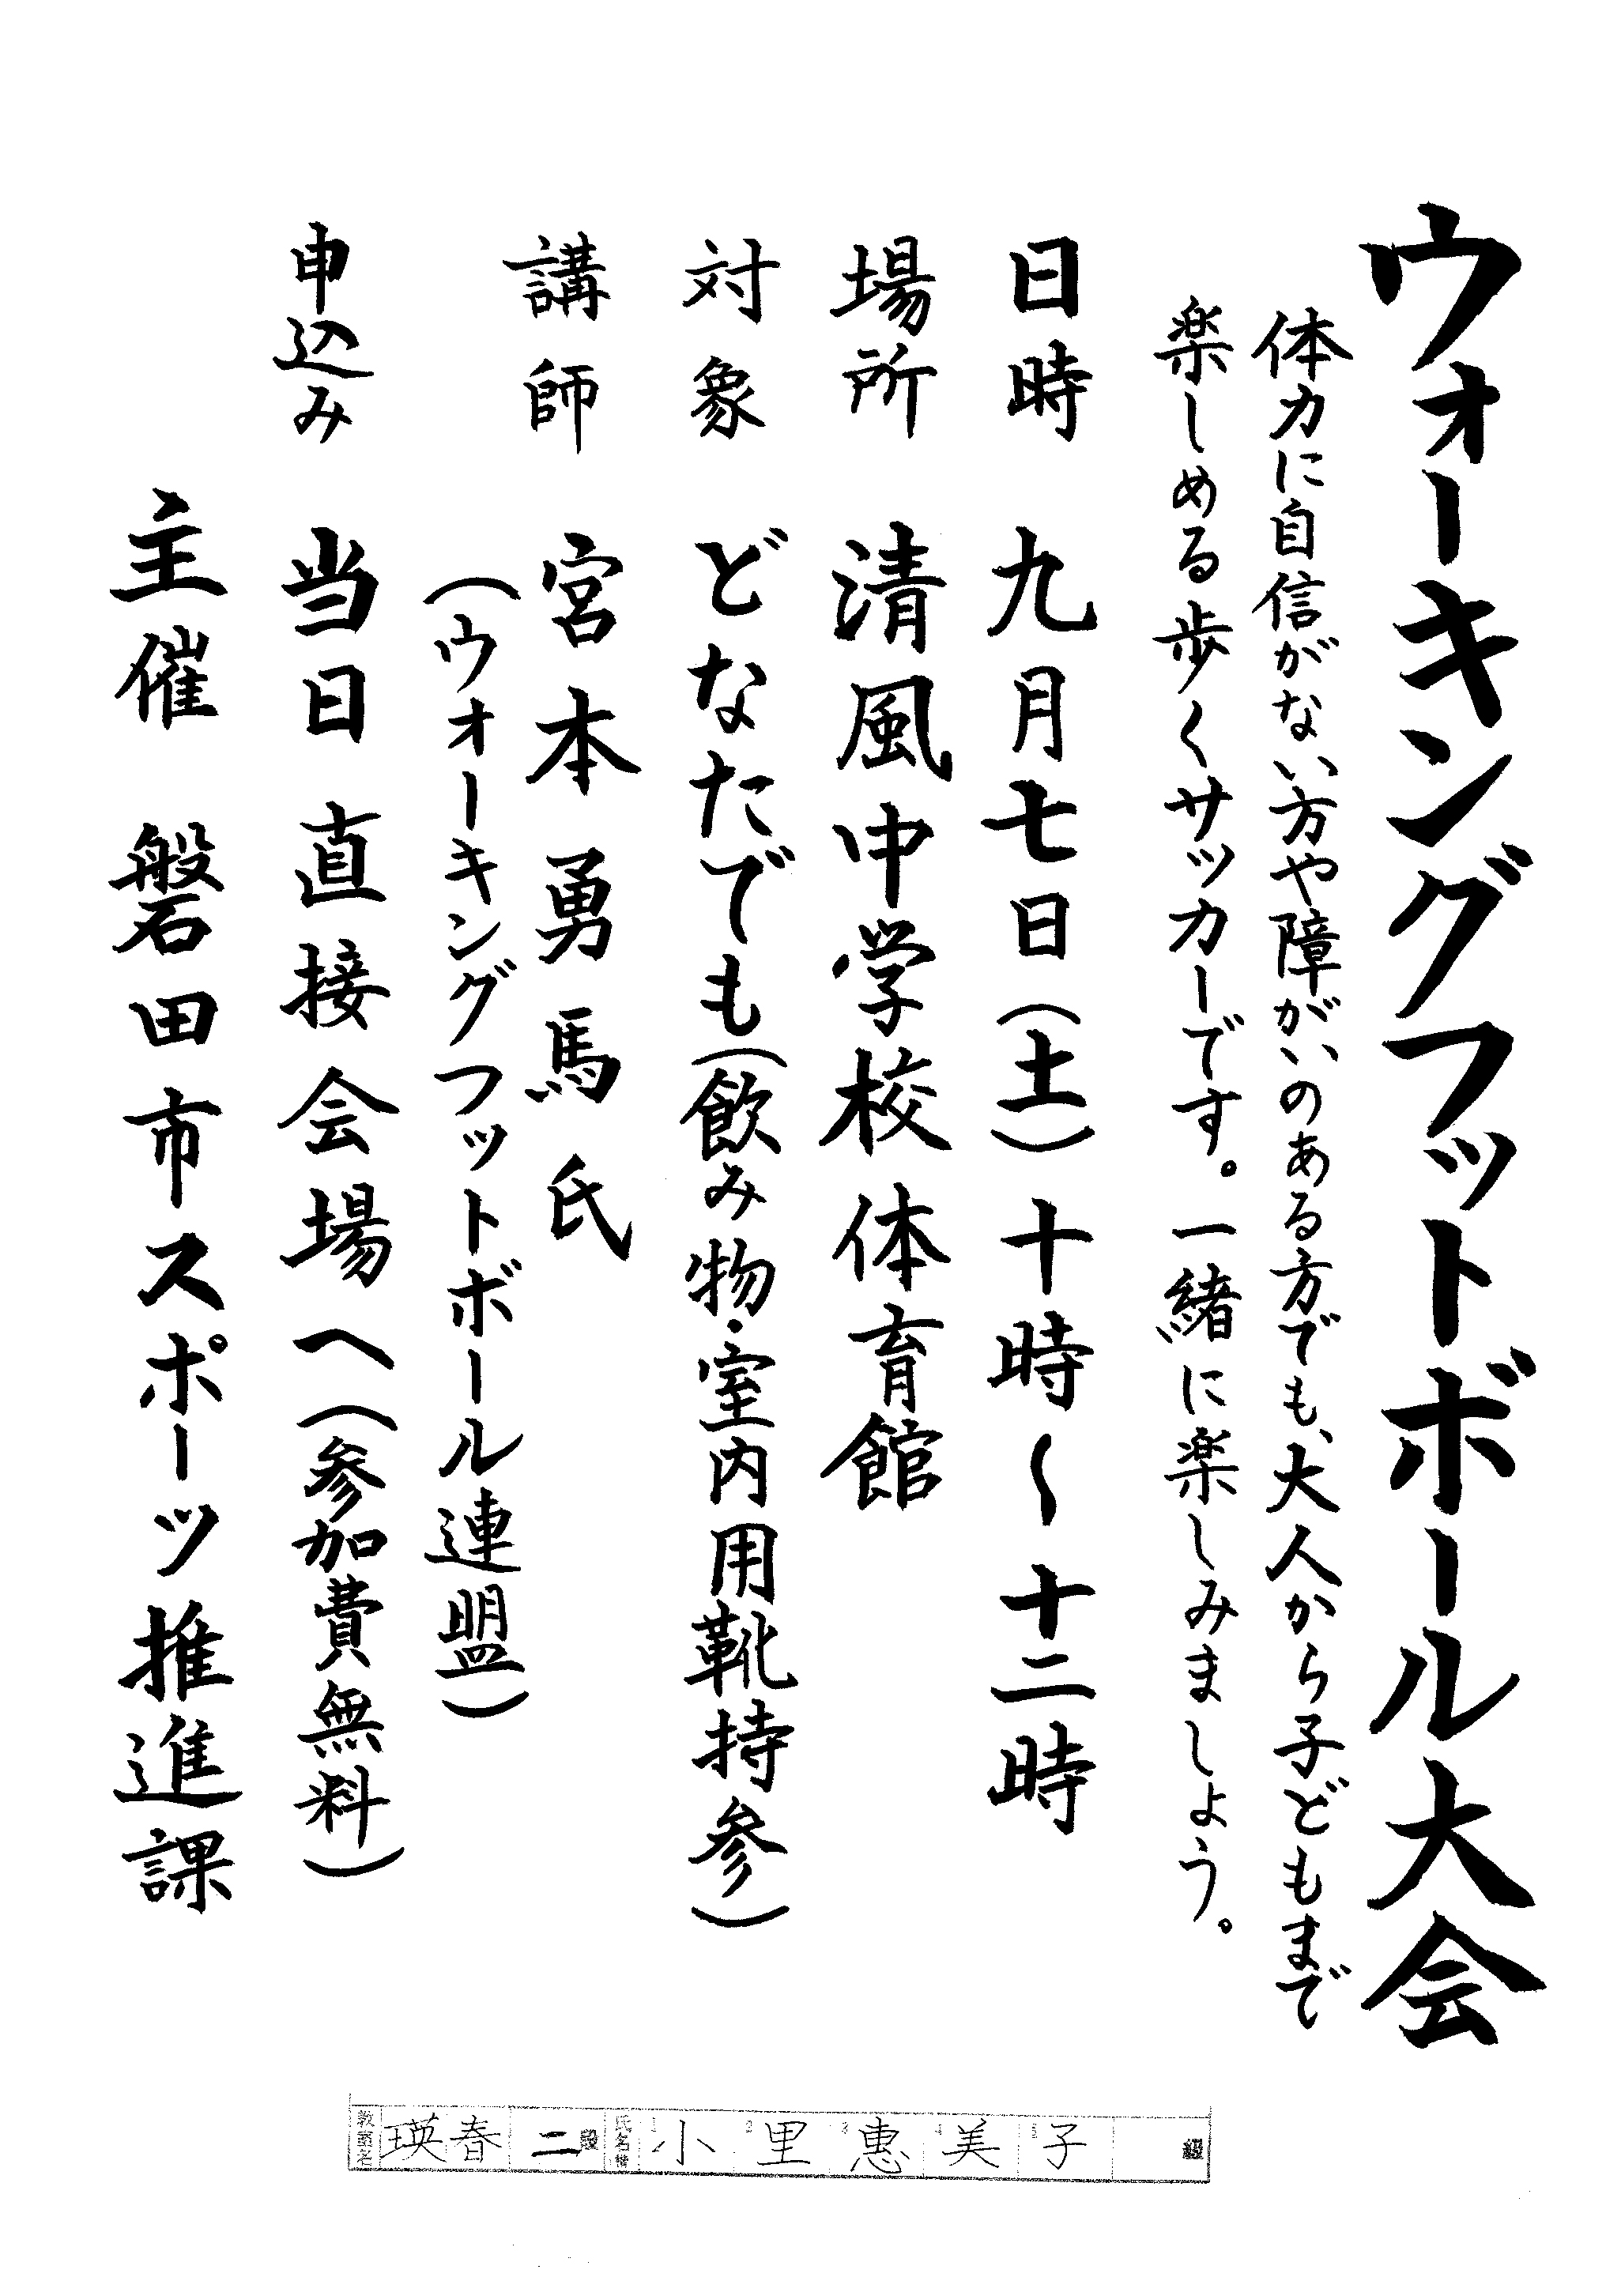 ウォーキングフットボール大会
体力に自信がない方や障がいのある方でも、大人から子どもまで
楽しめる歩くサッカーです。一緒に楽しみましょう。
日時 九月七日（土）十時〜十二時
場所 清風中学校体育館
対象 どなたでも（飲み物・室内用靴持参）
講師 宮本勇馬氏
（ウォーキングフットボール連盟）
申込み 当日直接会場へ（参加費無料）
主催 磐田市スポーツ推進課
教室名 瑛春 二段 氏名 小里惠美子 級